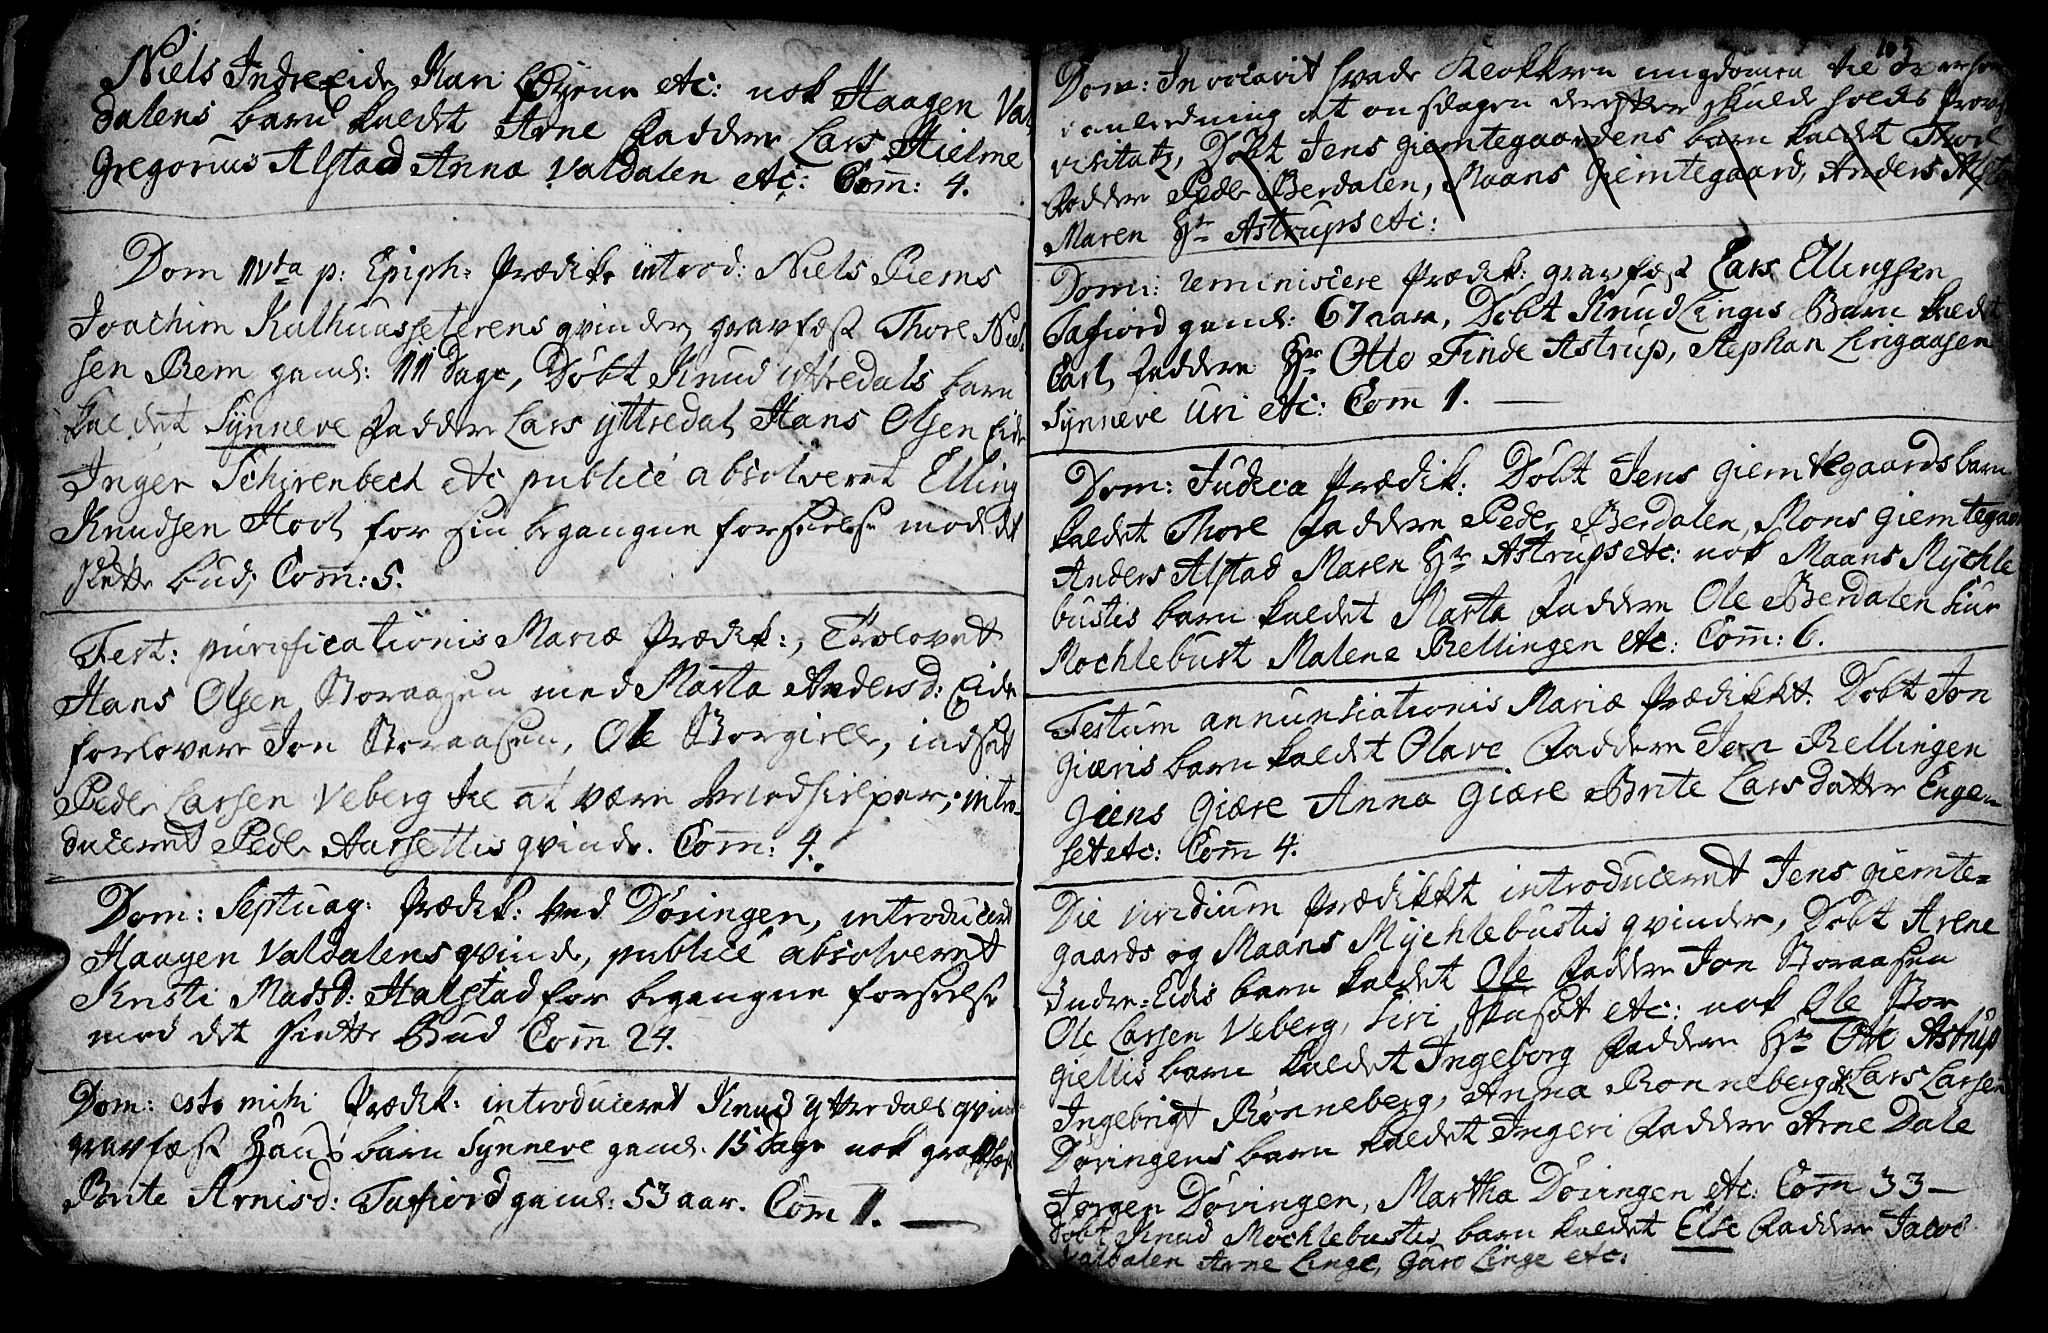 Niels Indre Eide, Kari Øyene etc: nok Haagen Val,
dalens barn kaldet Arne Faddere Lars Hielme
Gregorius Alstad Anna Valdalen etc: Com: 4.
Dom IVta p: Epiph: Prædik: introd: Niels Rems
Joachim Kalhuussæterens qvinder, gravfæst Thore Niel
sen Rem gaml: 11 Dage, Døbt Knud yttredals barn
kaldet Synneve Faddere Lars yttredal, Hans Olsen Eide
Inger Schirenbech etc publicè absolveret Elling
Knudsen Hool for sin begangne forseelse mod det
siette bud, Com: 5.
Fest: purificationis Mariæ Prædik:, Trolovet
Hans Olsen Storaasen med Marta Andersd: Eide
forlovere Jon Storaasen, Ole Storgielle, indsat
Peder Larsen Veberg til at være Medhielper, intro-
duceret Peder Aarsettis qvinde. Com: 4.
Dom: Septuag: Prædik: ved Døvingen, introduceret
Haagen Valdalens qvinde, publicè absolveret
Kristi Madsd: Halstad for begangne forseelse
mod det siette Bud Com 24.
Dom: esto mihi Prædik: introduceret Knud yttredals qvinde
gravfæst Hans barn Synneve gaml: 15 dage nok gravfæst
Brite Arnisd: Tafiord gaml: 53 aar. Com 1. —
105
Dom: Invocavit hvade Klokkeren ungdomen til
anledning at onsdagen derefter skulde holdes Provst
visitatz, Døbt Jens giemtegaardens barn kaldet Thore
Faddere Peder Berdalen, Maans Giemtegaard, Anders Alstad
Maren Hr Astrups etc:
Domi: reminiscere Prædik: gravfæst Lars Ellingsen
Tafiord gaml: 67 aar, Døbt Knud Lingis Barn kaldet
Carl, Faddere Hr Otto Finde Astrup, Stephan Lingaasen
Synneve Uri etc: Com 1. —
Dom: Judica Prædik: Døbt Jens giemtegaards barn
kaldet Thore Faddere Peder Berdalen, Mons giemtegaard
Anders Alstad Maren Hr Astrups etc: nok Maans Mychle
bustis barn kaldet Marta Faddere Ole Berdalen Siur
Mochlebust Malene Rellingen etc: Com: 6.
Festum annunsiationis Mariæ Prædikkt. Døbt Jon
giæris barn kaldet Olave Faddere Jon Rellingen
Jens Giære Anna Giære Brite Larsdatter Enge-
set etc: Com 4.
Die viridium Prædikkt introduceret Jens giemte-
gaards og Maans Mychlebustis qvinder, Døbt Arne
Indre-Eidis barn kaldet Ole Faddere Jon Storaasen
Ole Larsen Veberg, Siri etc: nok Ole Stor
giellis barn kaldet Ingeborg Faddere Hr Otto Astrup
Ingebrigt Rønneberg, Anna Rønneberg ok Lars Larsen
Døvingens barn kaldet Ingeri Faddere Arne Dale
Jørgen Døvingen, Martha Døvingen etc: Com 33 —
Døbt Knud Mochlebustis barn kaldet Else Faddere Jacob
Valdalen Arne Linge, Guro Linge etc: